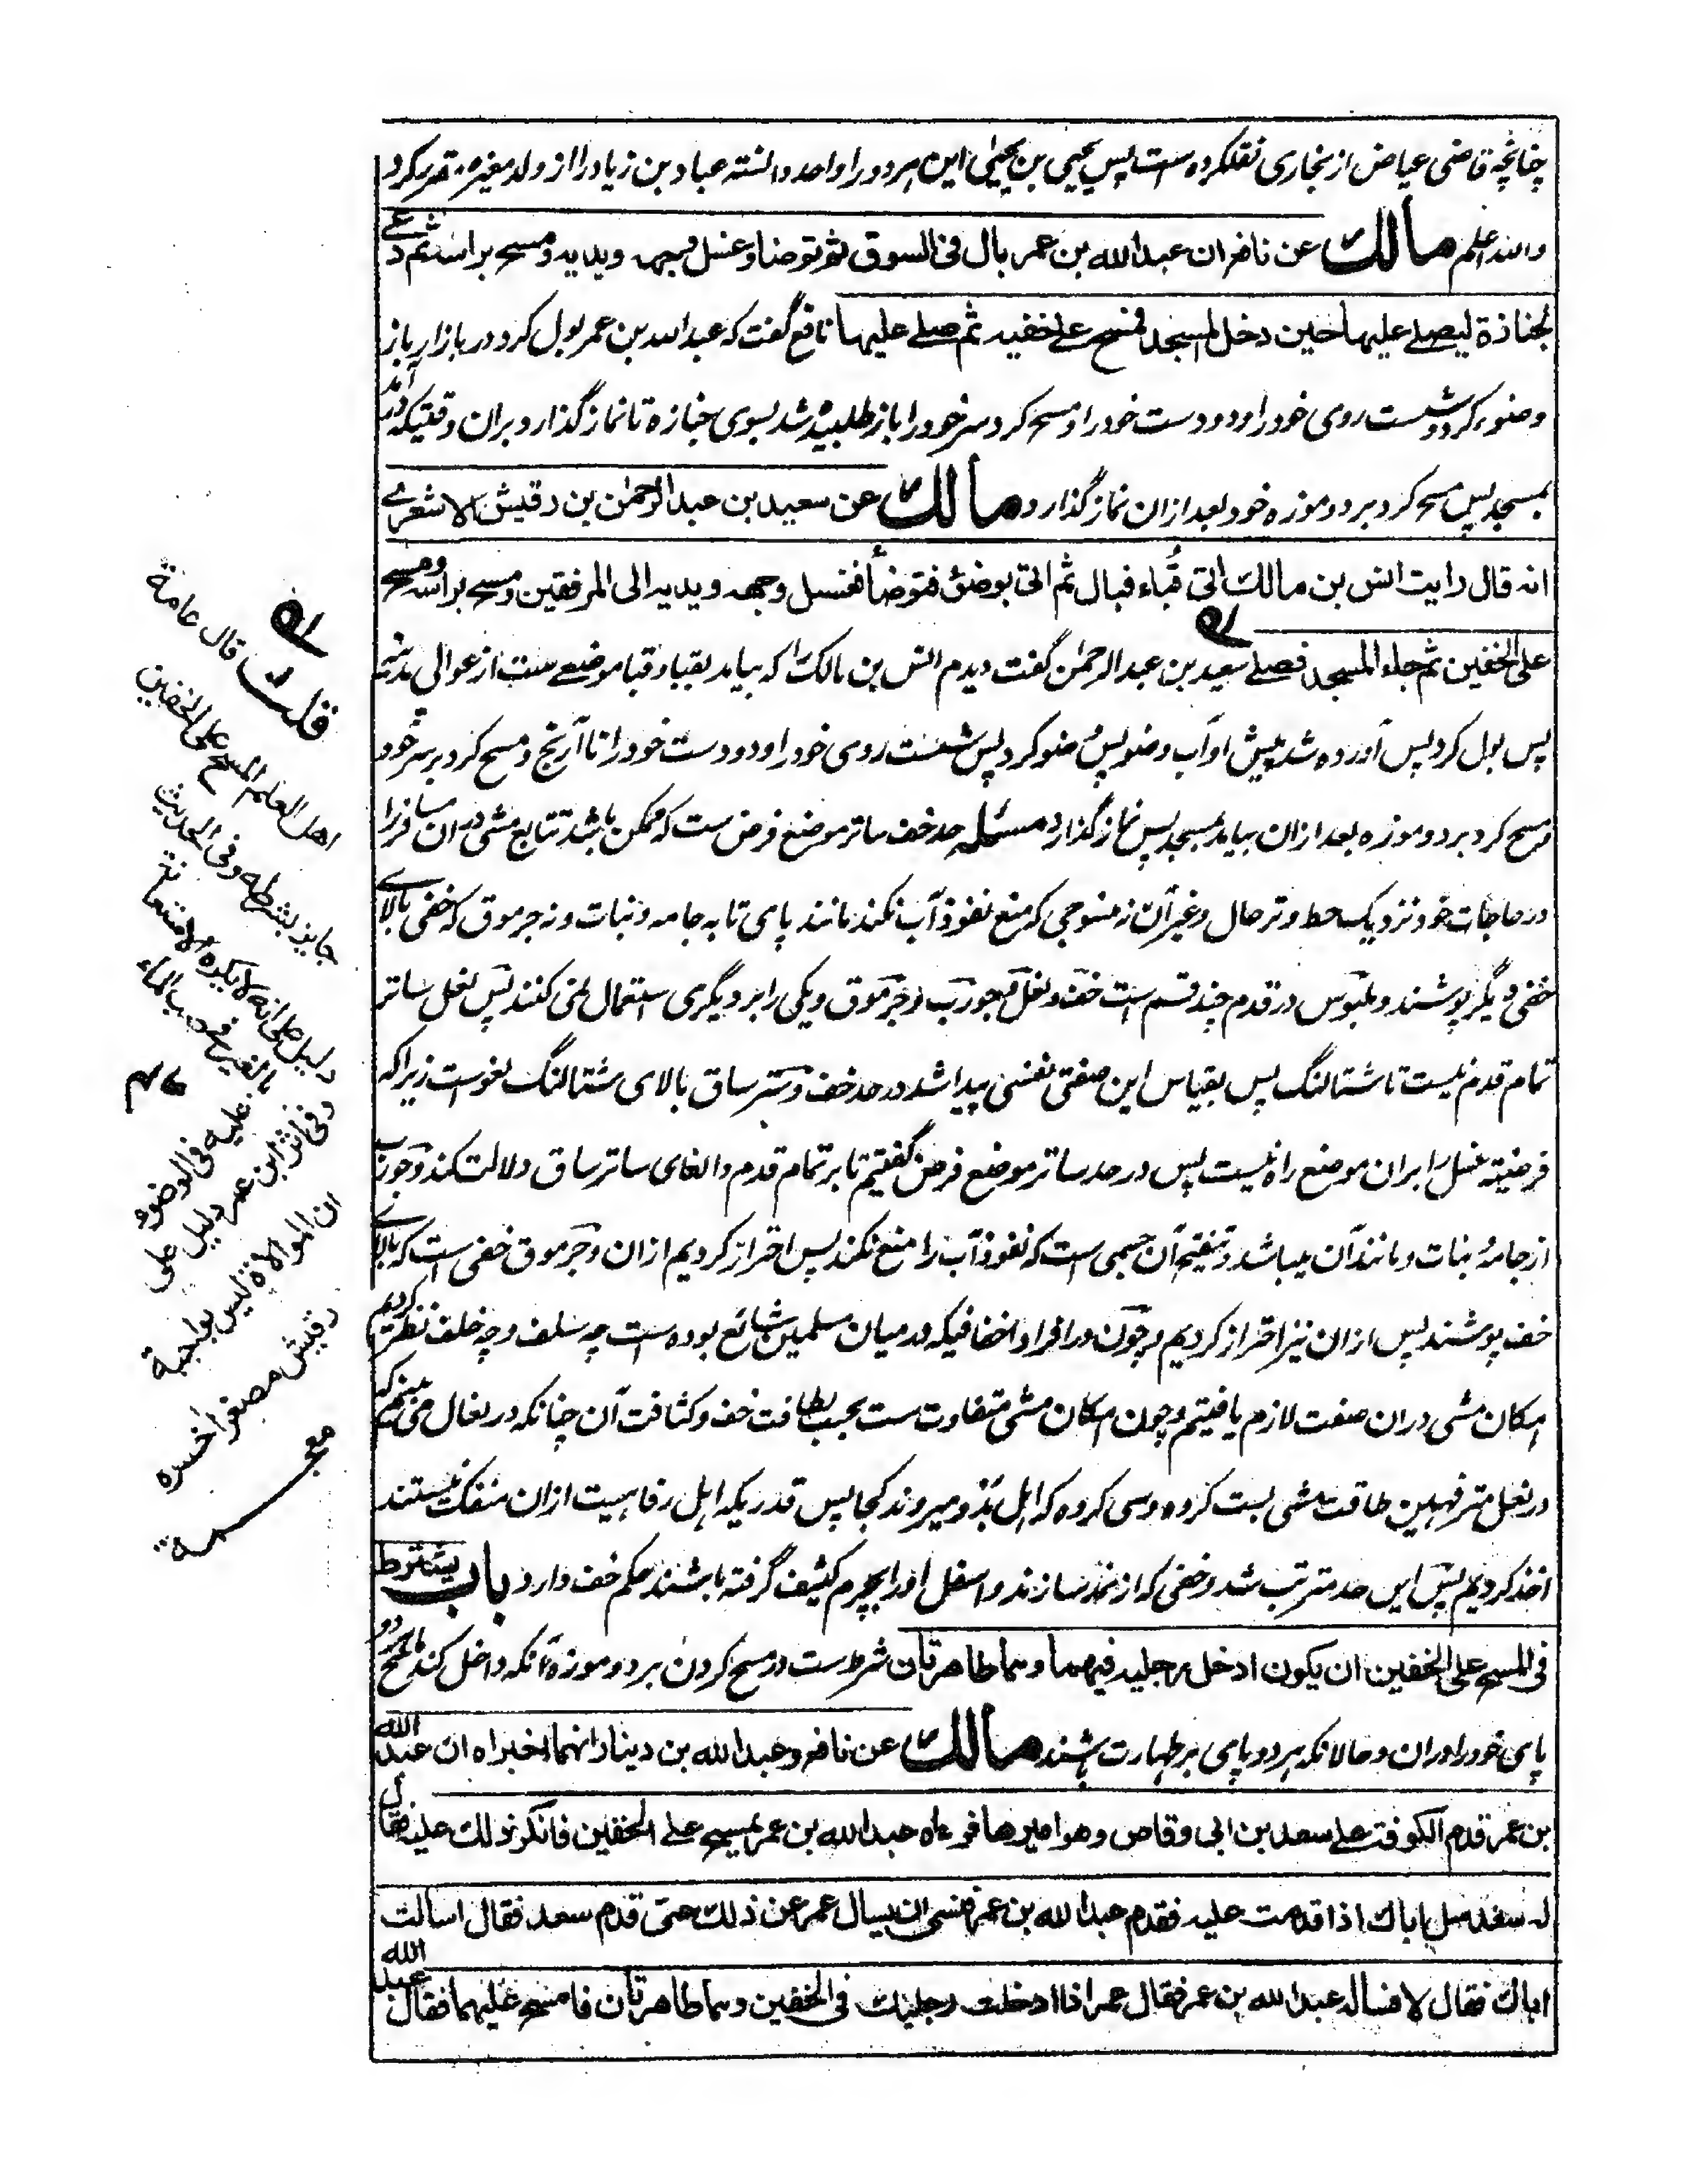 چنانچه قاضی عیاض از بخاری نقلکرده ست پس یحیی بن یحیی این هر دو را واحد دانسته عباد بن زیاد را از ولد مغیره تقریر کرد
والله اعلم مالك عن نافع ان عبد الله بن عمر بال فی السوق ثم توضا وغسل وجهه ویدیه ومسح براسه ثم دعی
لجنازة لیصلے علیها حین دخل المسجد فمسح علے خفیه ثم صلے علیها نافع گفت که عبد الله بن عمر بول کرد در بازار باز
وضوء کرد و شست روی خود را و دو دست خود را و مسح کرد سر خود را باز طلبیده شد بسوی جنازه تا نماز گذارد بران وقتیکه در آمد
بمسجد پس مسح کرد بر دو موزه خود بعد ازان نماز گذارد مالك عن سعید بن عبد الرحمٰن بن رقیش الاشعرے
انه قال رایت انس بن مالك اتی قُباء فبال ثم اتی بوضوء فتوضأ فغسل وجهه ویدیه الی المرفقین ومسح براسه ومسح
علی الخفین ثم جاء المسجد فصلے سعید بن عبد الرحمٰن گفت دیدم انس بن مالک را که بیامد بقبا و قبا موضعے ست از عوالی مدینه
پس بول کرد پس آورده شد پیش او آب وضو پس وضو کرد پس شست روی خود را و دو دست خود را تا آرنج و مسح کرد بر سر خود
و مسح کرد بر دو موزه بعد ازان بیامد بمسجد پس نماز گذارد مسئله حد خف ساتر موضع فرض ست که ممکن باشد تتابع مشی دران مسافر را
در حاجات خود نزدیک حط و ترحال و غیر آن نه منسوجی که منع نفوذ آب نکند مانند پای تابه جامه و نبات و نه جرموق که خفی بالاے
خفی دیگر پوشند و ملبوس در قدم چند قسم است خف و نعل و جورب و جرموق و یکی را بر دیگری استعمال نمی کنند پس نعل ساتر
تمام قدم نیست تا شتالنگ پس بقیاس این صفتی نفسی پیدا شد در حد خف و ستر ساق بالای شتالنگ لغوست زیرا که
فرضیته غسل را بران موضع راه نیست پس در حد ساتر موضع فرض گفتیم تا بر تمام قدم و الغای ساتر ساق دلالت کند و جورب
از جامهٔ نبات و مانند آن میباشد و تنقیح آن جسمی است که نفوذ آب را منع نکند پس احتراز کردیم ازان و جرموق خفی است که بالاے
خف پوشند پس ازان نیز احتراز کردیم و چون در افراد اخفافیکه در میان مسلمین شائع بوده ست چه سلف و چه خلف نظر کردیم
امکان مشی دران صفت لازم یافتیم و چون امکان مشی متفاوت ست بحسب لطافت خف و کثافت آن چنانکه در نعال می بینیم که
در نعل مترفهین طاقت مشی بست کروه و سی کروه که اهل بدو میروند کجا پس قدریکه اهل رفاهیت ازان منفک نیستند
اخذ کردیم پس این حد مترتب شد و خفی که از نمد سازند و اسفل او را بچرم کثیف گرفته باشند حکم خف دارد باب یشترط
فی المسح علی الخفین ان یکون ادخل رجلیه فیهما وهما طاهرتان شرط ست در مسح کردن بر دو موزه آنکه داخل کند ماسح دو
پای خود را دران و حالانکه هر دو پای بر طهارت باشند مالك عن نافع وعبد الله بن دینار انهما اخبراه ان عبد الله
ابن عمر قدم الکوفة علے سعد بن ابی وقاص وهو امیرها فرءاه عبد الله بن عمر یمسح علے الخفین فانکر ذلك علیه فقال
له سعد سل اباك اذا قدمت علیه فقدم عبد الله بن عمر فنسی ان یسال عمر عن ذلك حتی قدم سعد فقال اسالت
اباك فقال لا فساله عبد الله بن عمر فقال عمر اذا ادخلت رجلیك فی الخفین وهما طاهرتان فامسح علیهما فقال عبد الله
قلت قال عامة
اهل العلم المسح علی الخفین
جایز بشرطه وفی الحدیث
دلیل علی انه لا یکره الاستعانة
بالغیر فی صب الماء
علیه فی الوضوء
وفی اثر ابن عمر دلیل علی
ان الموالاة لیس بواجبة
رقیش مصغر اخره
معجمة